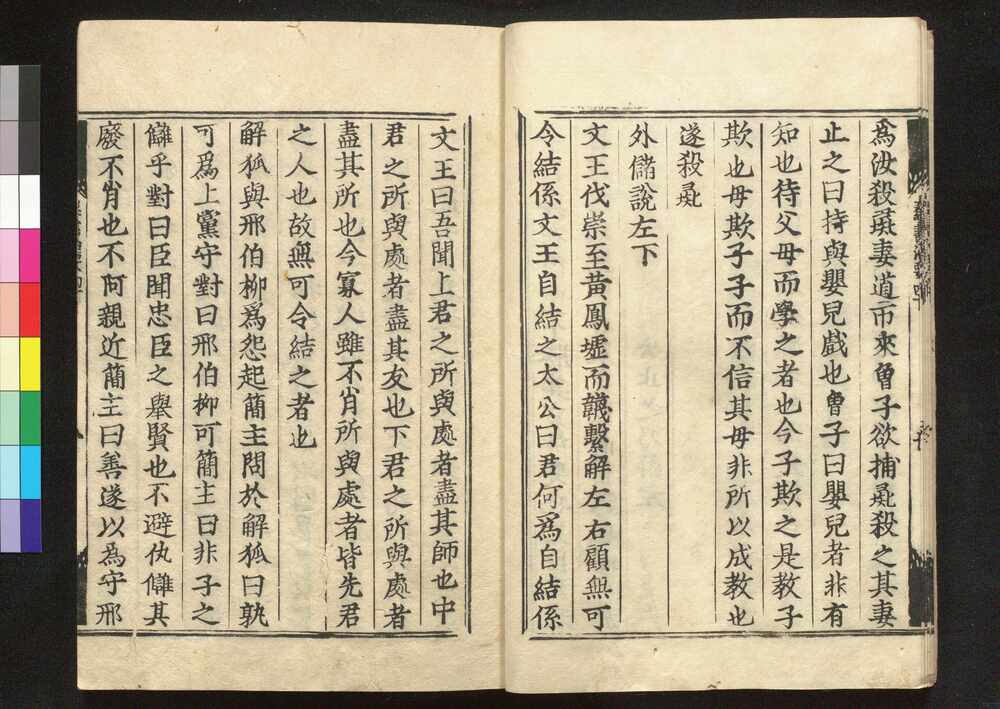 爲汝殺彘妻道市來曾子欲捕彘殺之其妻
止之曰持與嬰兒戱也曾子曰嬰兒者非有
知也待父母而學之者也今子欺之是教子
欺也母欺子子而不信其母非所以成教也
遂殺彘
外儲說左下
文王伐崇至黃鳳墟而韤繫解左右顧無可
令結係文王自結之太公曰君何爲自結係
文王曰吾聞上君之所與處者盡其師也中
君之所與處者盡其友也下君之所與處者
盡其所也今寡人雖不肖所與處者皆先君
之人也故無可令結之者也
解狐與邢伯柳爲怨起簡主問於解狐曰孰
可爲上黨守對曰邢伯柳可簡主曰非子之
讎乎對曰臣聞忠臣之舉賢也不避仇讎其
廢不肖也不阿親近簡主曰善遂以爲守邢